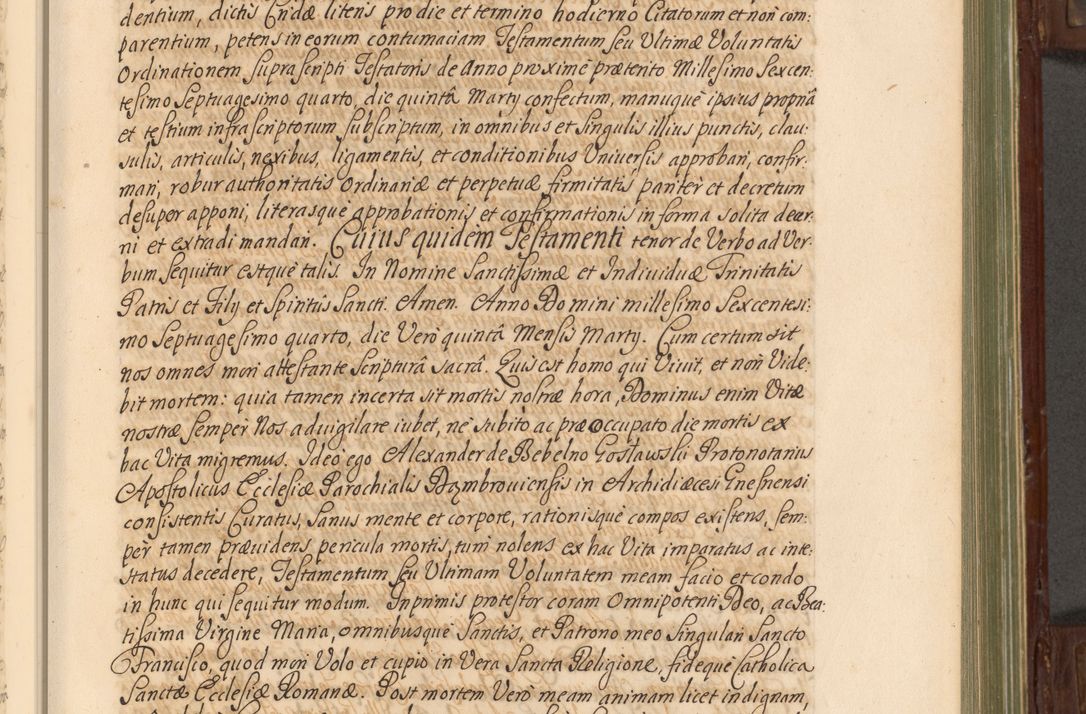 dentium, dictis Cridæ literis pro die et termino hodierno Citatorum et non com:
parentium, petens in eorum contumaciam Testamentum seu Ultimæ Voluntatis
Ordinationem suprascripti Testatoris de Anno proximè præterito Millesimo Sexcen:
tesimo Septuagesimo quarto, die quintâ Marty confectum, manuquè ipsius propriâ
et testium infrascriptorum subscriptum, in omnibus et singulis illius punctis, clau:
sulis, articulis, nexibus, ligamentis, et conditionibus Universis approbari, confir:
mari, robur authoritatis Ordinariæ et perpetuæ firmitatis pariter et decretum
desuper apponi, literasquè approbationis et confirmationis in forma solita decer:
ni et extradi mandari. Cuius quidem Testamenti tenor de Verbo ad Ver:
bum sequitur estquè talis. In Nomine Sanctissimæ et Individuæ Trinitatis
Patris et Fily et Spiritus Sancti. Amen. Anno Domini millesimo Sexcentesi:
mo Septuagesimo quarto, die Verò quintâ Mensis Marty. Cum certum sit
nos omnes mori attestante Scripturâ sacrâ. Quis est homo qui Vivit, et non Vide:
bit mortem: quia tamen incerta sit mortis nostræ hora, Dominus enim Vitæ
nostræ semper Nos advigilare iubet, nè subito ac præoccupato die mortis ex
hac Vita migremus. Ideo ego Alexander de Bebelno Gosławski Protonotarius
Apostolicus Ecclesiæ Parochialis Dąmbrouiensis in Archidiæcesi Gnesnensi
consistentis Curatus, sanus mente et corpore, rationisquè compos existens, sem:
pèr tamen prævidens pericula mortis, tum nolens ex hac Vita imparatus ac inte:
status decedere, Testamentum seu Ultimam Voluntatem meam facio et condo
in hunc qui sequitur modum. Inprimis protestor coram Omnipotenti Deo, ac Bea:
tissima Virgine Maria, omnibusquè Sanctis, et Patrono meo Singulari Sancto
Francisco, quod mori Volo et cupio in Vera Sancta Religione, fidequè Catholica
Sanctæ Ecclesiæ Romanæ. Post mortem Verò meam animam licet indignam,